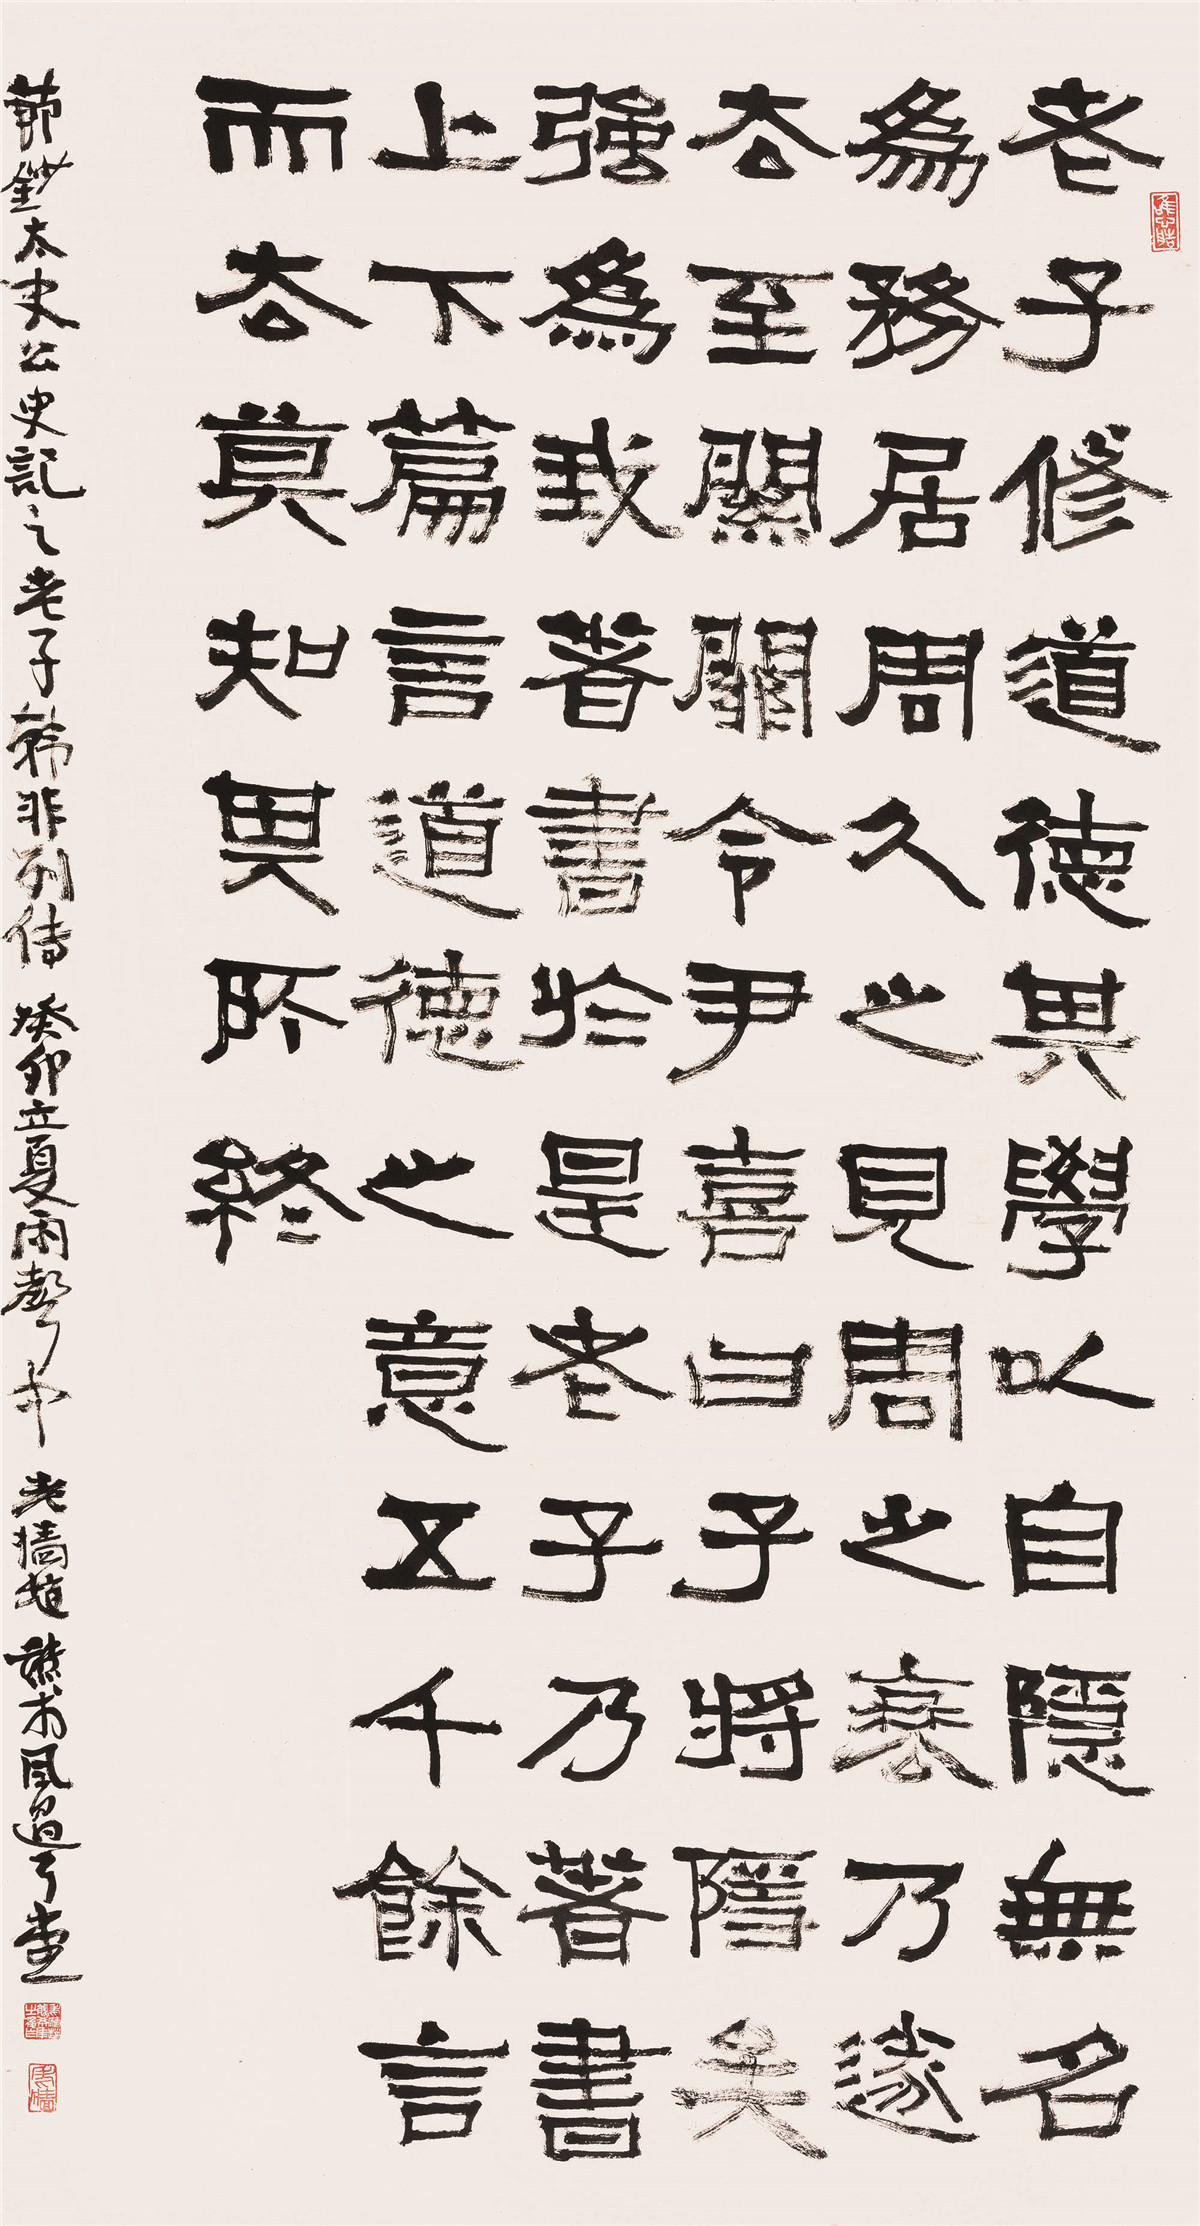 老子修道德其學以自隱無名
爲務居周久之見周之衰乃遂
去至關關令尹喜曰子將隱矣
強爲我著書於是老子乃著書
上下篇言道德之意五千餘言
而去莫知其所終
節鈔太史公史記之老子韓非列傳 癸卯立夏雨聲中 老墻 風過耳堂